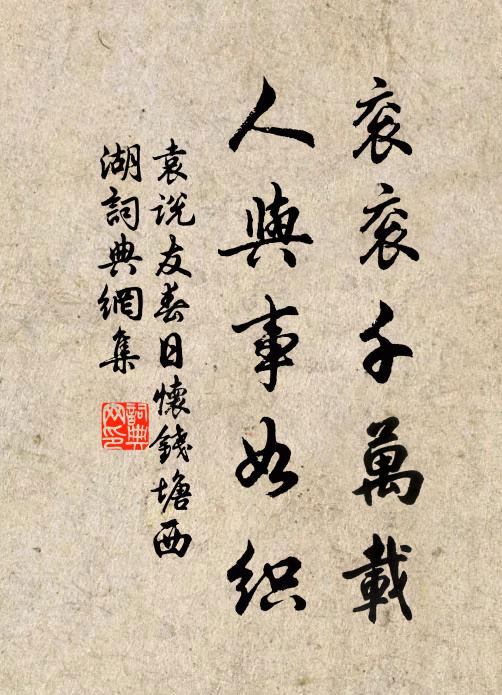 衮衮千萬載
人與事如织
袁说友春日懷錢塘西
湖詞典網集
詞典网印